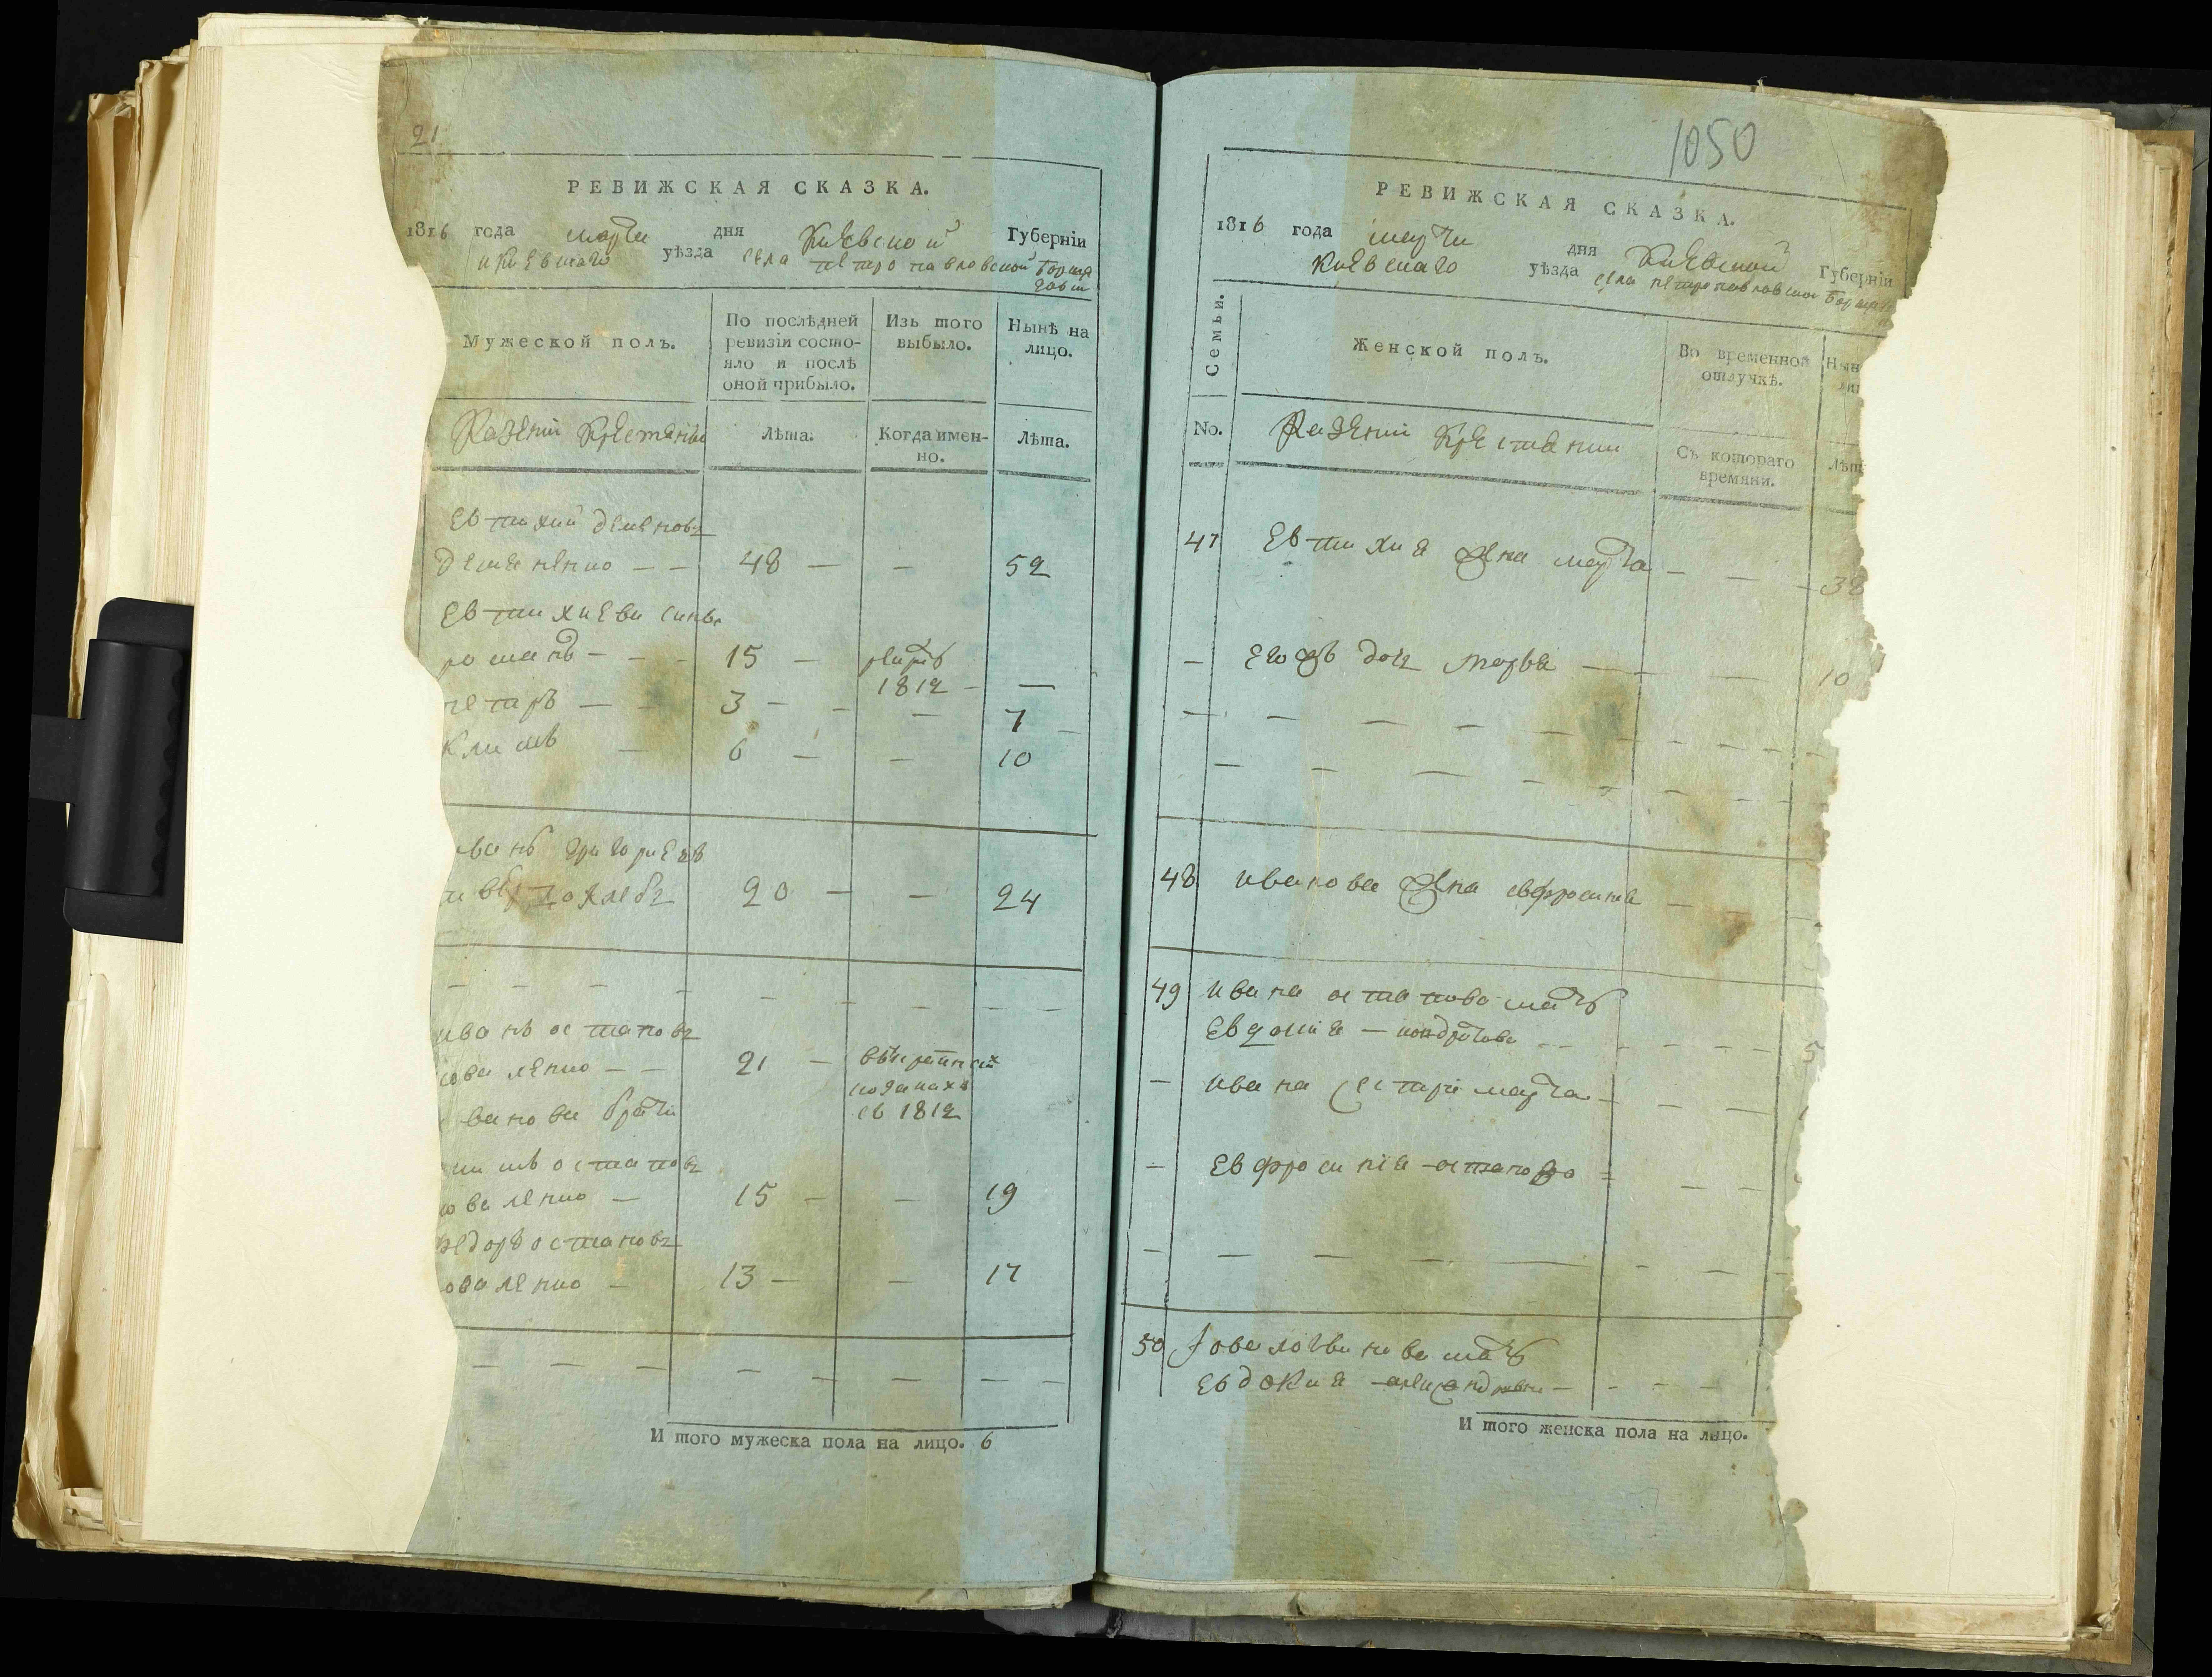 21
РЕВИЖСКАЯ СКАЗКА.
1816 года марта дня Киевской Губерніи
Киевскаго уѣзда села петропавловской борща
говки
Мужеской полъ.
По послѣдней ревизіи состо-
яло и послѣ оной прибыло.
Изъ того выбыло.
Нынѣ на лицо.
Казеніи крестяни
Лѣта.
Когда имен-
но.
Лѣта.
Евтихий деменовъ
деменко — — 48 — — 52
Евтихиеви сини
романъ — — 15 — рекрт 1812 — —
петръ — — 3 — — — 7
Климъ — 6 — — 10
ванъ григориевъ
20 — — 24
иванъ остаповъ
коваленко — — 21 —
1812
ванови брати
остаповъ
коваленко — 15 — — 19
федоръ остаповъ
оваленко — 13 — — 17
И того мужеска пола на лицо. 6
1050
РЕВИЖСКАЯ СКАЗКА.
1816 года марта дня Киевской Губерніи
Киевскаго уѣзда села петропавловской борща
Семьи.
Женской полъ.
Во временной отлучкѣ.
Нын
ли
No.
Казеніи крестяни
Съ котораго времяни.
Лѣт
47 Евтихия жена марта — — — 38
— Его дочь марья — — — 10
48 иванова жена евфросиния — — —
49 ивана остапова мать
Евдокия — кондратова
— ивана сестри марта — — —
— Евфросиния остапова — — —
50 Іова логвинова мать
Евдокия александрова
И того женска пола на лицо.